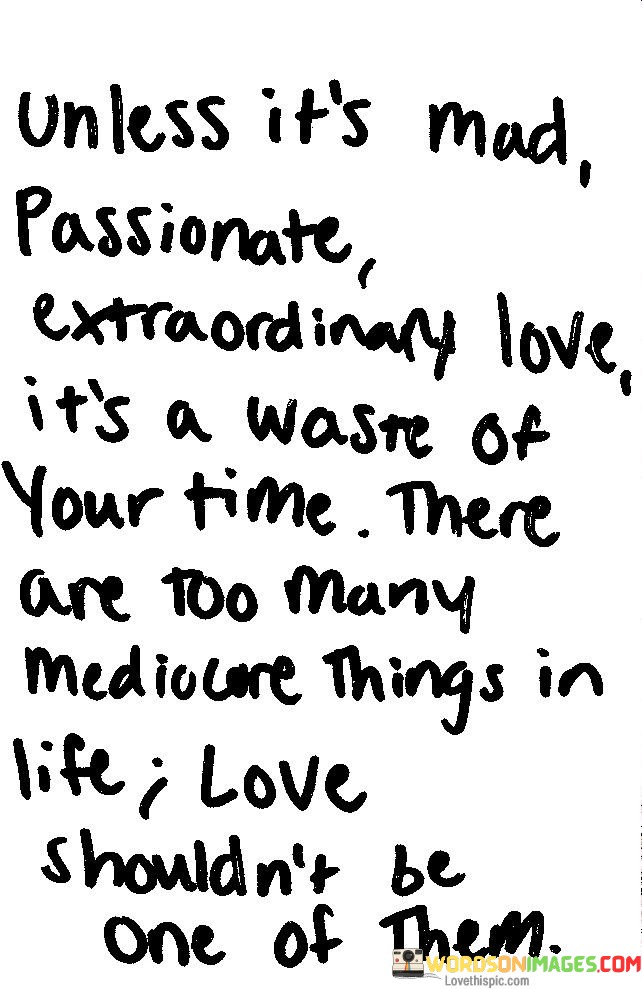 unless it's mad,
Passionate,
extraordinary love,
it's a waste of
Your time. There
are too many
mediocore Things in
life; Love
shouldn't be
one of Them.
WORDSONIMAGES.COM
Lovethispic.com